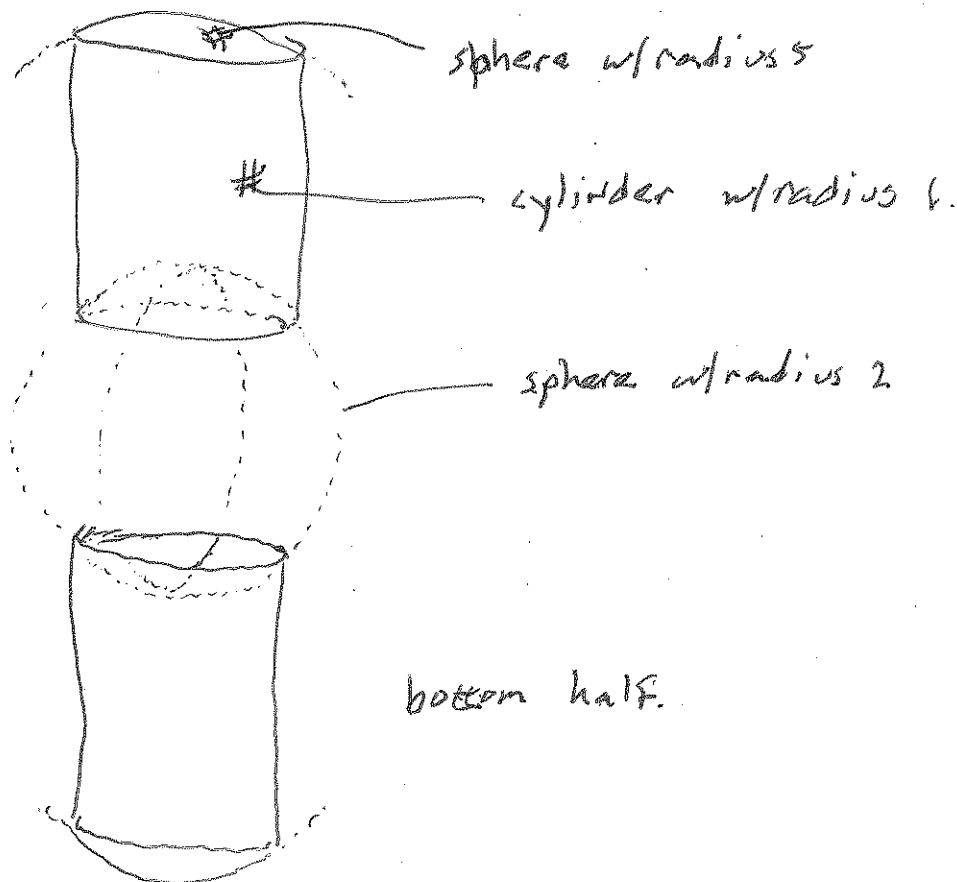 sphere w/radius 5
#
cylinder w/radius 1.
sphere w/radius 2
bottom half.